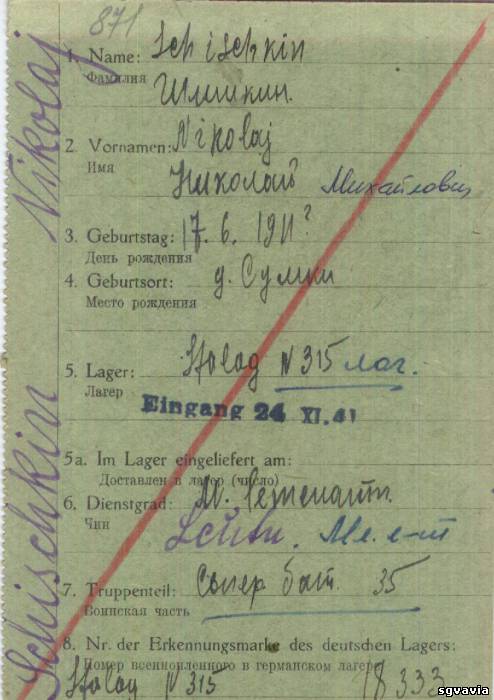 871
1. Name: Schischkin
Фамилия Шишкин.
2. Vornamen: Nikolaj
Имя Николай Михайлович
3. Geburtstag: 17. 6. 1911?
День рождения
4. Geburtsort: д. Сумки
Место рождения
5. Lager: Stalag N 315 лаг.
Лагер
Eingang 24 XI. 41
5a. Im Lager eingeliefert am:
Доставлен в лагер (число)
6. Dienstgrad: М. лейтенант.
Чин Leutn. Мл. л-т
7. Truppenteil: Сапер бат. 35
Воинская часть
8. Nr. der Erkennungsmarke des deutschen Lagers:
Номер военнопленного в германском лагере
Stalag N 315 18333
Schischkin Nikolaj
sgvavia